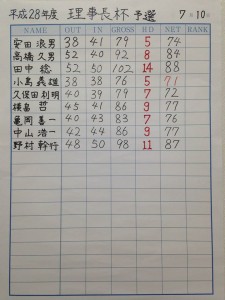 平成28年度 理事長杯 予選 7月10日
NAME OUT IN GROSS H.D NET RANK
安田 浪男 38 41 79 5 74
高橋 久男 52 40 92 8 84
田中 稔 52 50 102 14 88
小島 義雄 38 38 76 5 71
久保田 利明 40 39 79 7 72
横畠 哲 45 41 86 9 77
亀岡 喜一 40 43 83 7 76
中山 浩一 42 44 86 9 77
野村 幹行 48 50 98 11 87